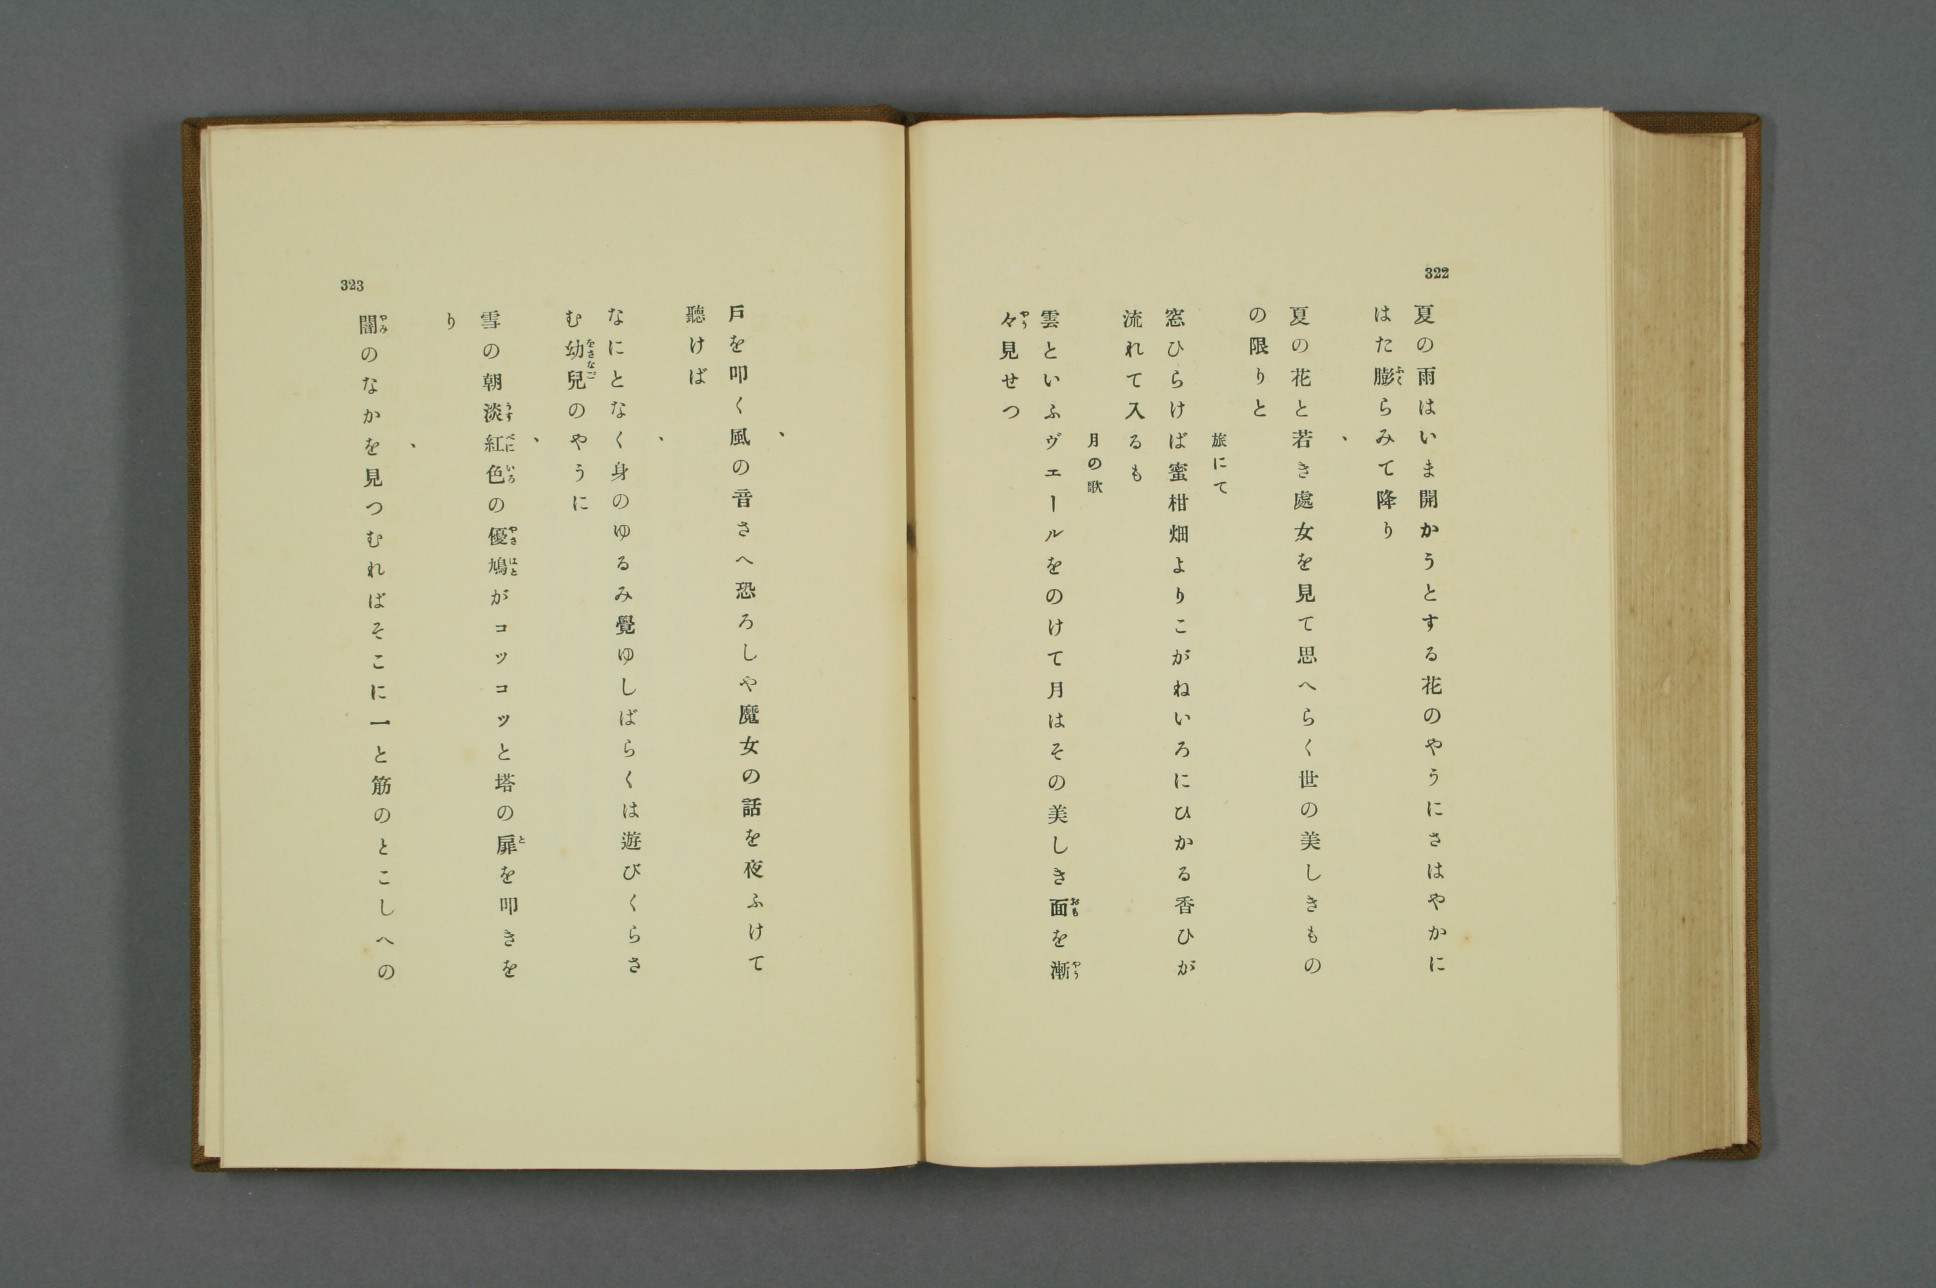 322
夏の雨はいま開かうとする花のやうにさはやかに
はた膨らみて降り
、
夏の花と若き處女を見て思へらく世の美しきもの
の限りと
旅にて
窓ひらけば蜜柑畑よりこがねいろにひかる香ひが
流れて入るも
月の歌
雲といふヴェールをのけて月はその美しき面を漸
々見せつ
、
戸を叩く風の音さへ恐ろしや魔女の話を夜ふけて
聽けば
、
なにとなく身のゆるみ覺ゆしばらくは遊びくらさ
む幼兒のやうに
、
雪の朝淡紅色の優鳩がコッコッと塔の扉を叩きを
り
、
闇のなかを見つむればそこに一と筋のとこしへの
323